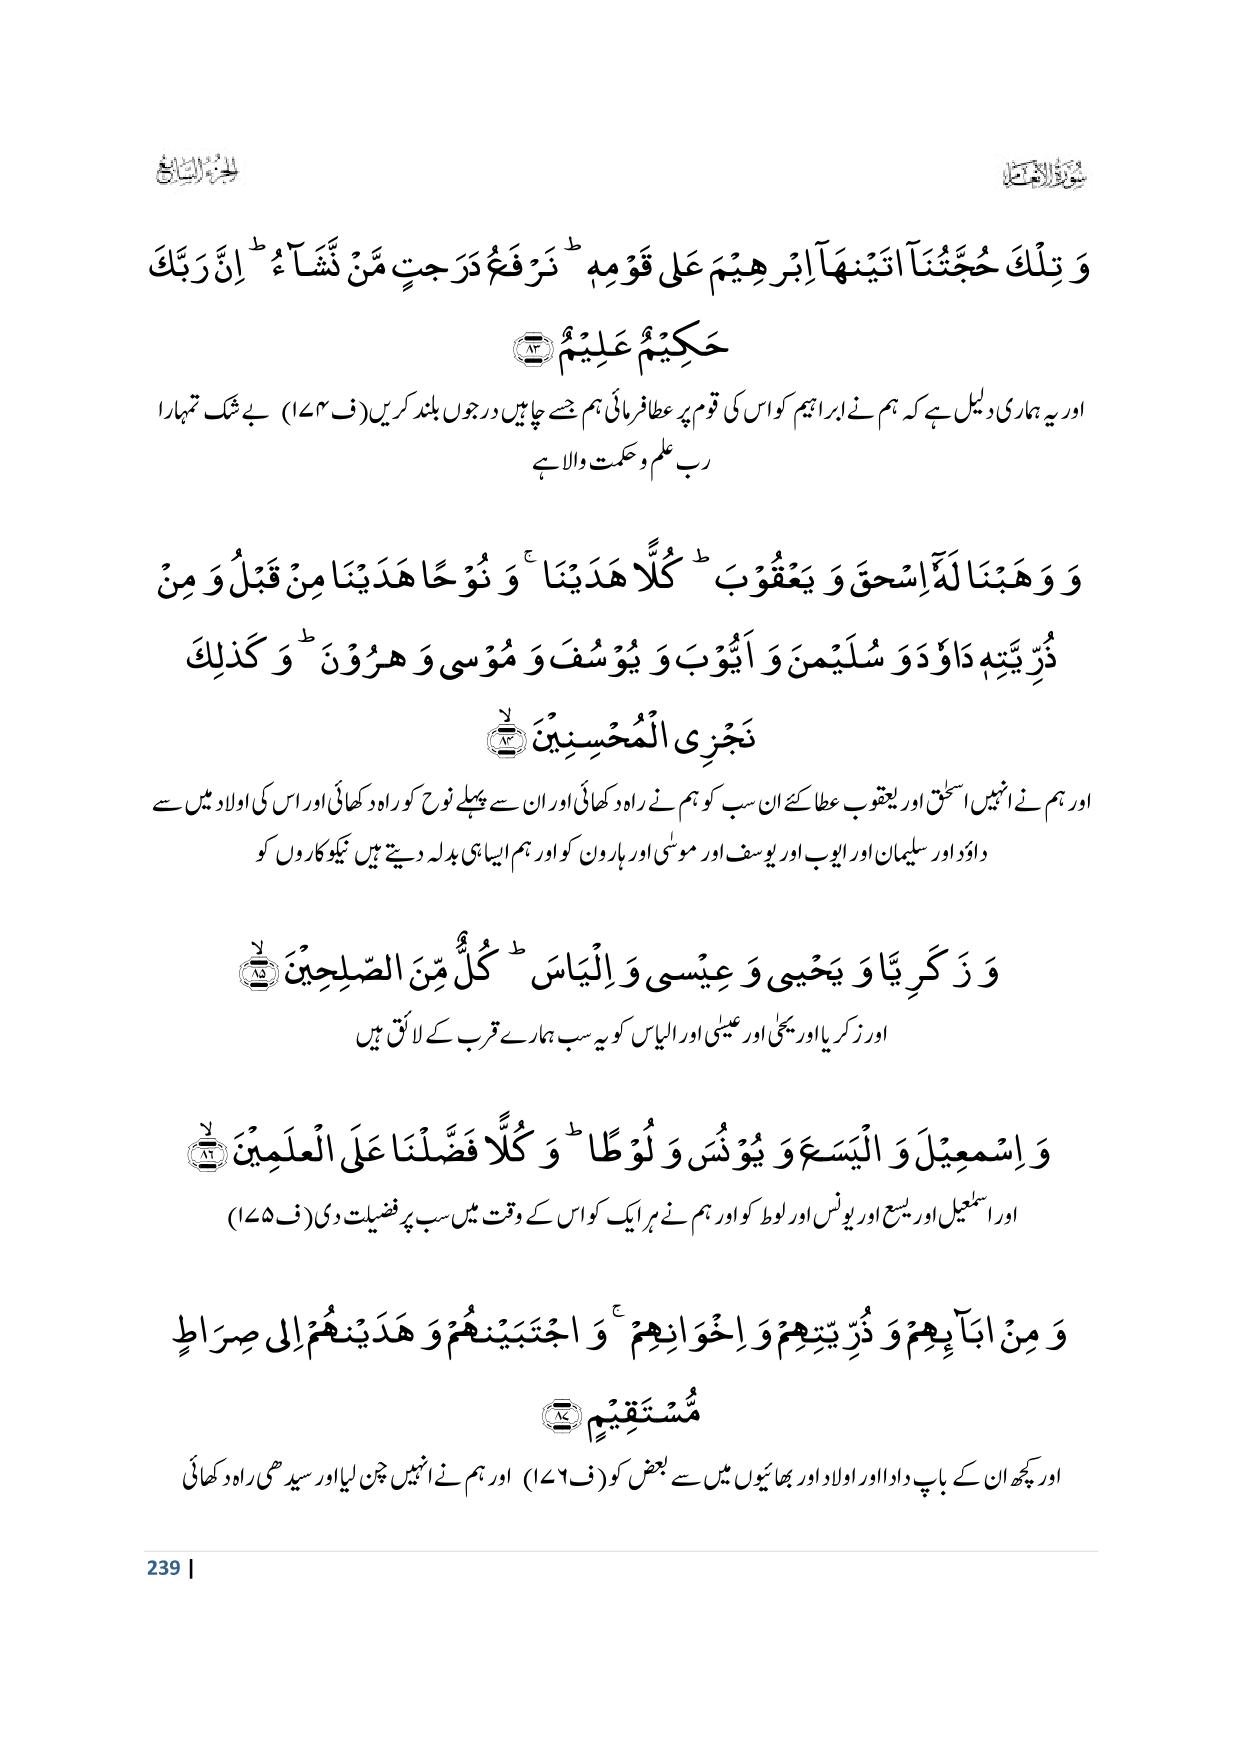 سُوْرَةُ الْاَنْعَام
اَلْجُزْءُ السَّابِع
وَ تِلْكَ حُجَّتُنَاۤ اٰتَیْنٰهَاۤ اِبْرٰهِیْمَ عَلٰى قَوْمِهٖ ؕ نَرْفَعُ دَرَجٰتٍ مَّنْ نَّشَآءُ ؕ اِنَّ رَبَّكَ
حَكِیْمٌ عَلِیْمٌ ۝۸۳
اور یہ ہماری دلیل ہے کہ ہم نے ابراہیم کو اس کی قوم پر عطا فرمائی ہم جسے چاہیں درجوں بلند کریں (ف۱۷۴) بے شک تمہارا
رب علم و حکمت والا ہے
وَ وَهَبْنَا لَهٗۤ اِسْحٰقَ وَ یَعْقُوْبَ ؕ كُلًّا هَدَیْنَا ۚ وَ نُوْحًا هَدَیْنَا مِنْ قَبْلُ وَ مِنْ
ذُرِّیَّتِهٖ دَاوٗدَ وَ سُلَیْمٰنَ وَ اَیُّوْبَ وَ یُوْسُفَ وَ مُوْسٰى وَ هٰرُوْنَ ؕ وَ كَذٰلِكَ
نَجْزِی الْمُحْسِنِیْنَ ۙ۝۸۴
اور ہم نے انہیں اسحٰق اور یعقوب عطا کئے ان سب کو ہم نے راہ دکھائی اور ان سے پہلے نوح کو راہ دکھائی اور اس کی اولاد میں سے
داؤد اور سلیمان اور ایوب اور یوسف اور موسٰی اور ہارون کو اور ہم ایسا ہی بدلہ دیتے ہیں نیکوکاروں کو
وَ زَكَرِیَّا وَ یَحْیٰى وَ عِیْسٰى وَ اِلْیَاسَ ؕ كُلٌّ مِّنَ الصّٰلِحِیْنَ ۙ۝۸۵
اور زکریا اور یحیٰی اور عیسٰی اور الیاس کو یہ سب ہمارے قرب کے لائق ہیں
وَ اِسْمٰعِیْلَ وَ الْیَسَعَ وَ یُوْنُسَ وَ لُوْطًا ؕ وَ كُلًّا فَضَّلْنَا عَلَى الْعٰلَمِیْنَ ۙ۝۸۶
اور اسمٰعیل اور یسع اور یونس اور لوط کو اور ہم نے ہر ایک کو اس کے وقت میں سب پر فضیلت دی (ف۱۷۵)
وَ مِنْ اٰبَآىِٕهِمْ وَ ذُرِّیّٰتِهِمْ وَ اِخْوَانِهِمْ ۚ وَ اجْتَبَیْنٰهُمْ وَ هَدَیْنٰهُمْ اِلٰى صِرَاطٍ
مُّسْتَقِیْمٍ ۝۸۷
اور کچھ ان کے باپ دادا اور اولاد اور بھائیوں میں سے بعض کو (ف۱۷۶) اور ہم نے انہیں چن لیا اور سیدھی راہ دکھائی
239 |